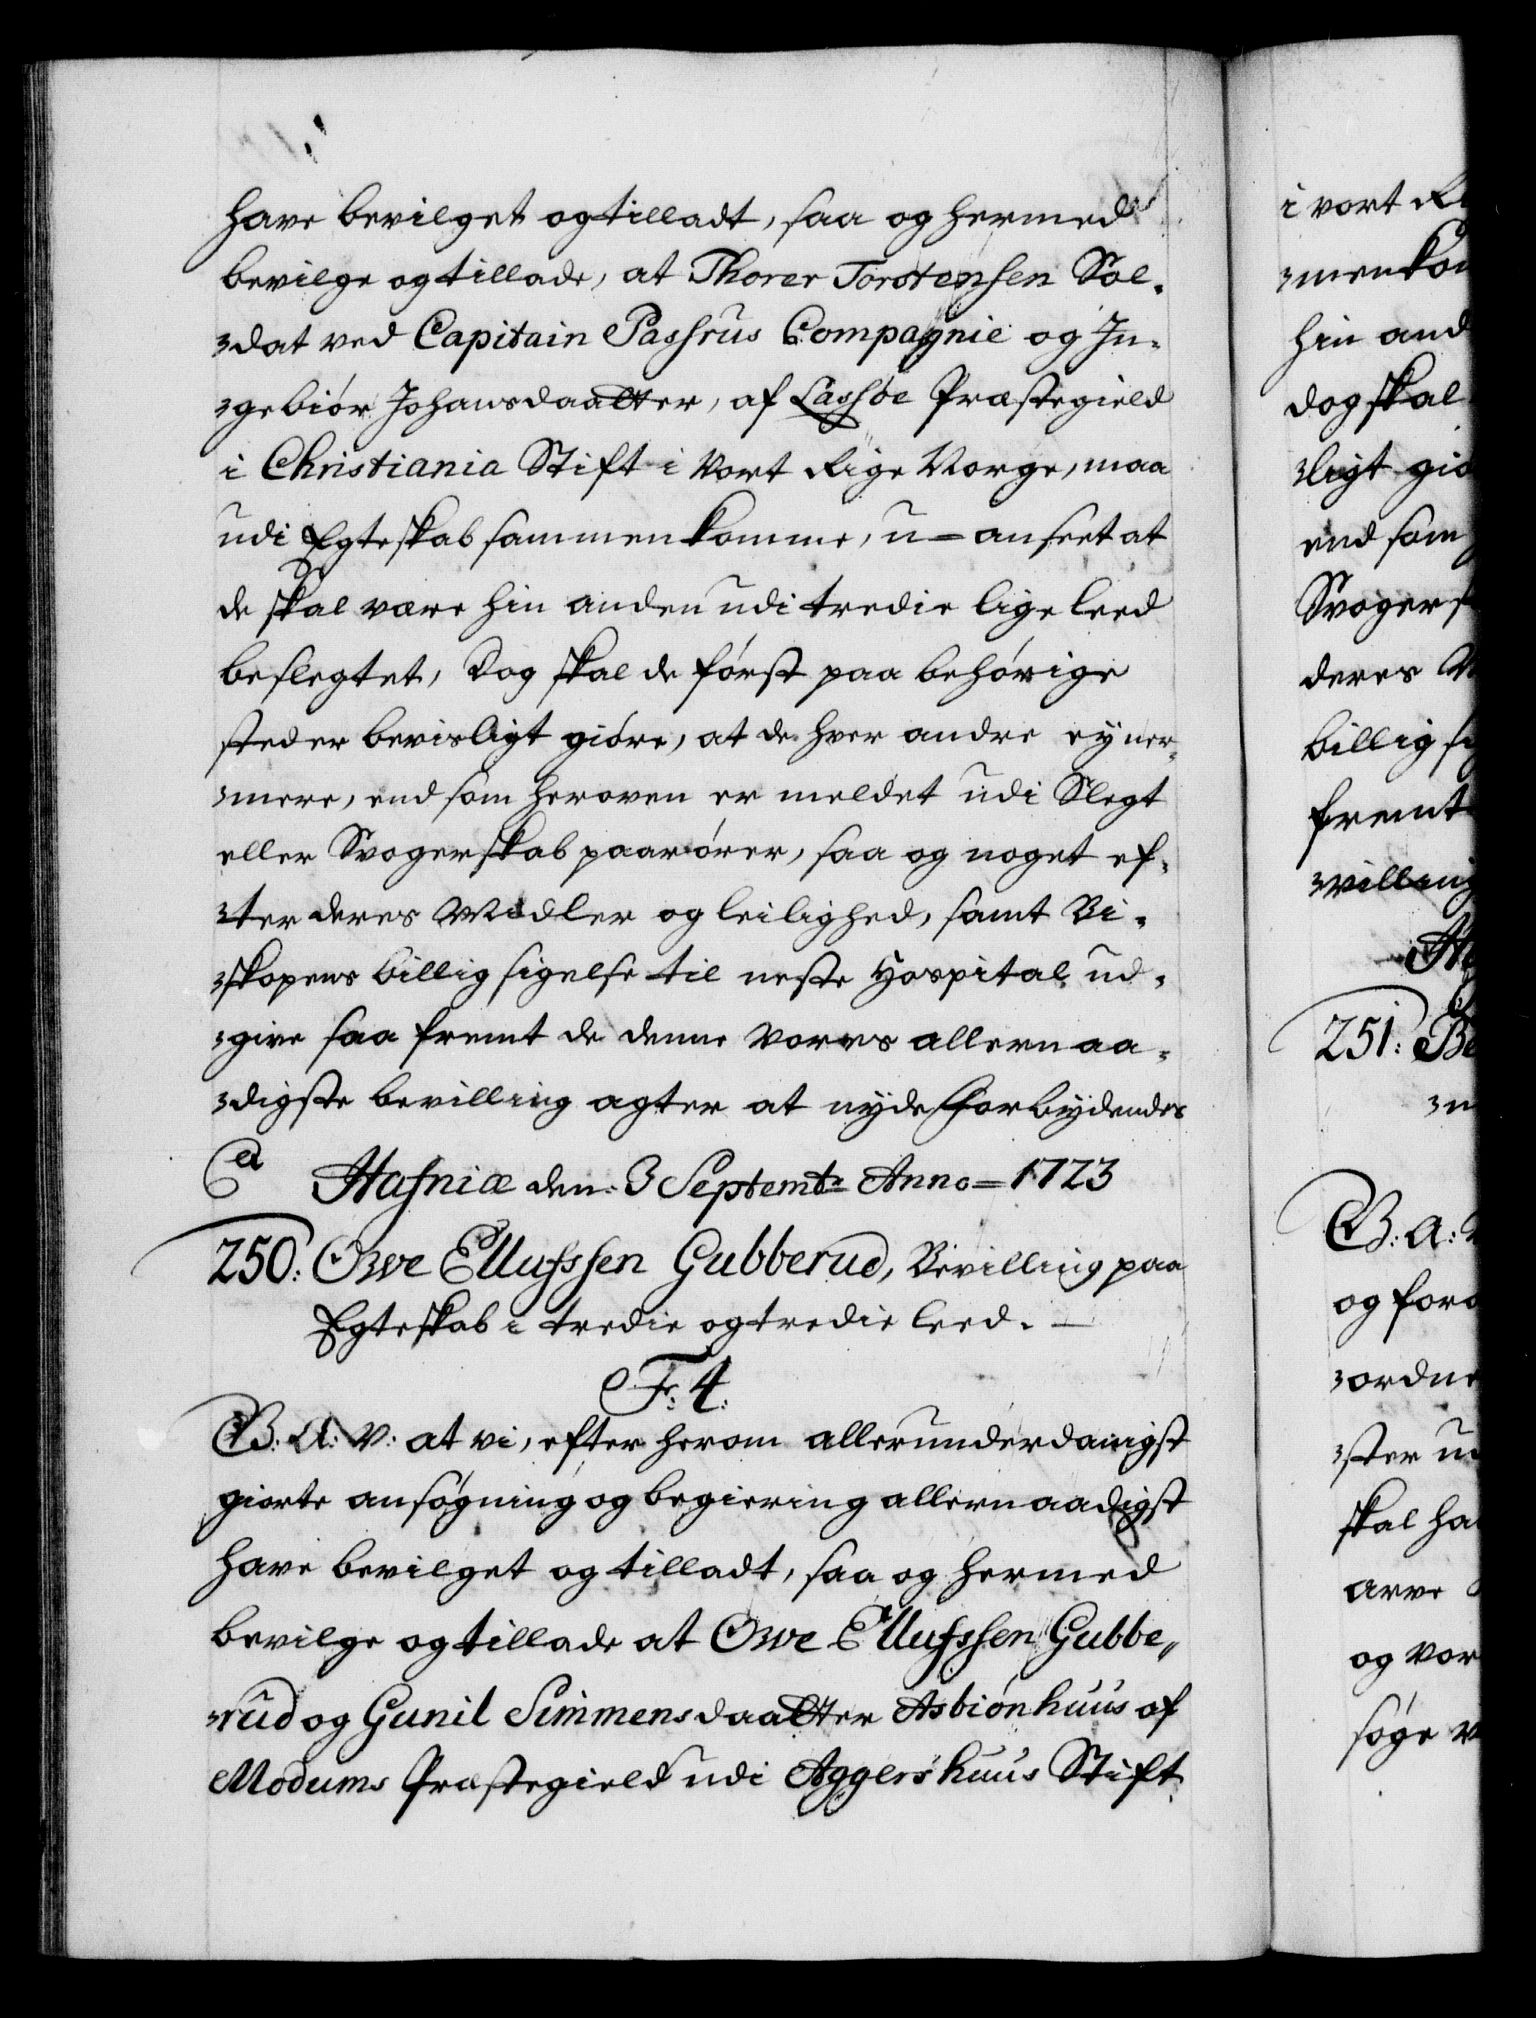 have bevilget og tilladt, saa og hermed
bevilge og tillade, at Thorer Torstensen Sol-
-dat ved Capitain Passrus Compagnie og In-
-gebiør Johansdaatter, af Lassøe Præstegield
i Christiania Stift i Vort Rige Norge, maa
udi Egteskab sammenkomme, u-anseet at
de skal være hin anden udi tredie lige leed
beslegtet, Dog skal de først paa behørige
steder bevisligt giøre, at de hver andre ej ner-
-mere, end som heroven er meldet udi Slegt
eller Svogerskab paarører, saa og noget ef-
-ter deres Midler og leilighed, samt Bi-
-skopens billig sigelse til neste Hospital ud-
-give saa fremt de denne vores allernaa-
-digste bevilling agter at nyde Forbydendes
Hafniæ den: 3 Septembr: Anno= 1723
250: Owe Ellufssen Gubberud, Bevilling paa
Egteskab i tredie og tredie leed.
Fr: 4:
G: A: V: at vi, efter herom allerunderdanigst
giorte ansøgning og begiering allernaadigst
have bevilget og tilladt, saa og hermed
bevilge og tillade at Owe Ellufssen Gubbe-
-rud og Gunil Simmensdaatter Asbiønhuus af
Modums Præstegield udi Aggershuus Stift
i vort
-menkom
hin and
dog skal
-ligt giø
end som
Svogers
deres
billig si
fremt
-villing
251: Be
og for
-ordne
-ster ud
skal ha
arve
og vor
søge